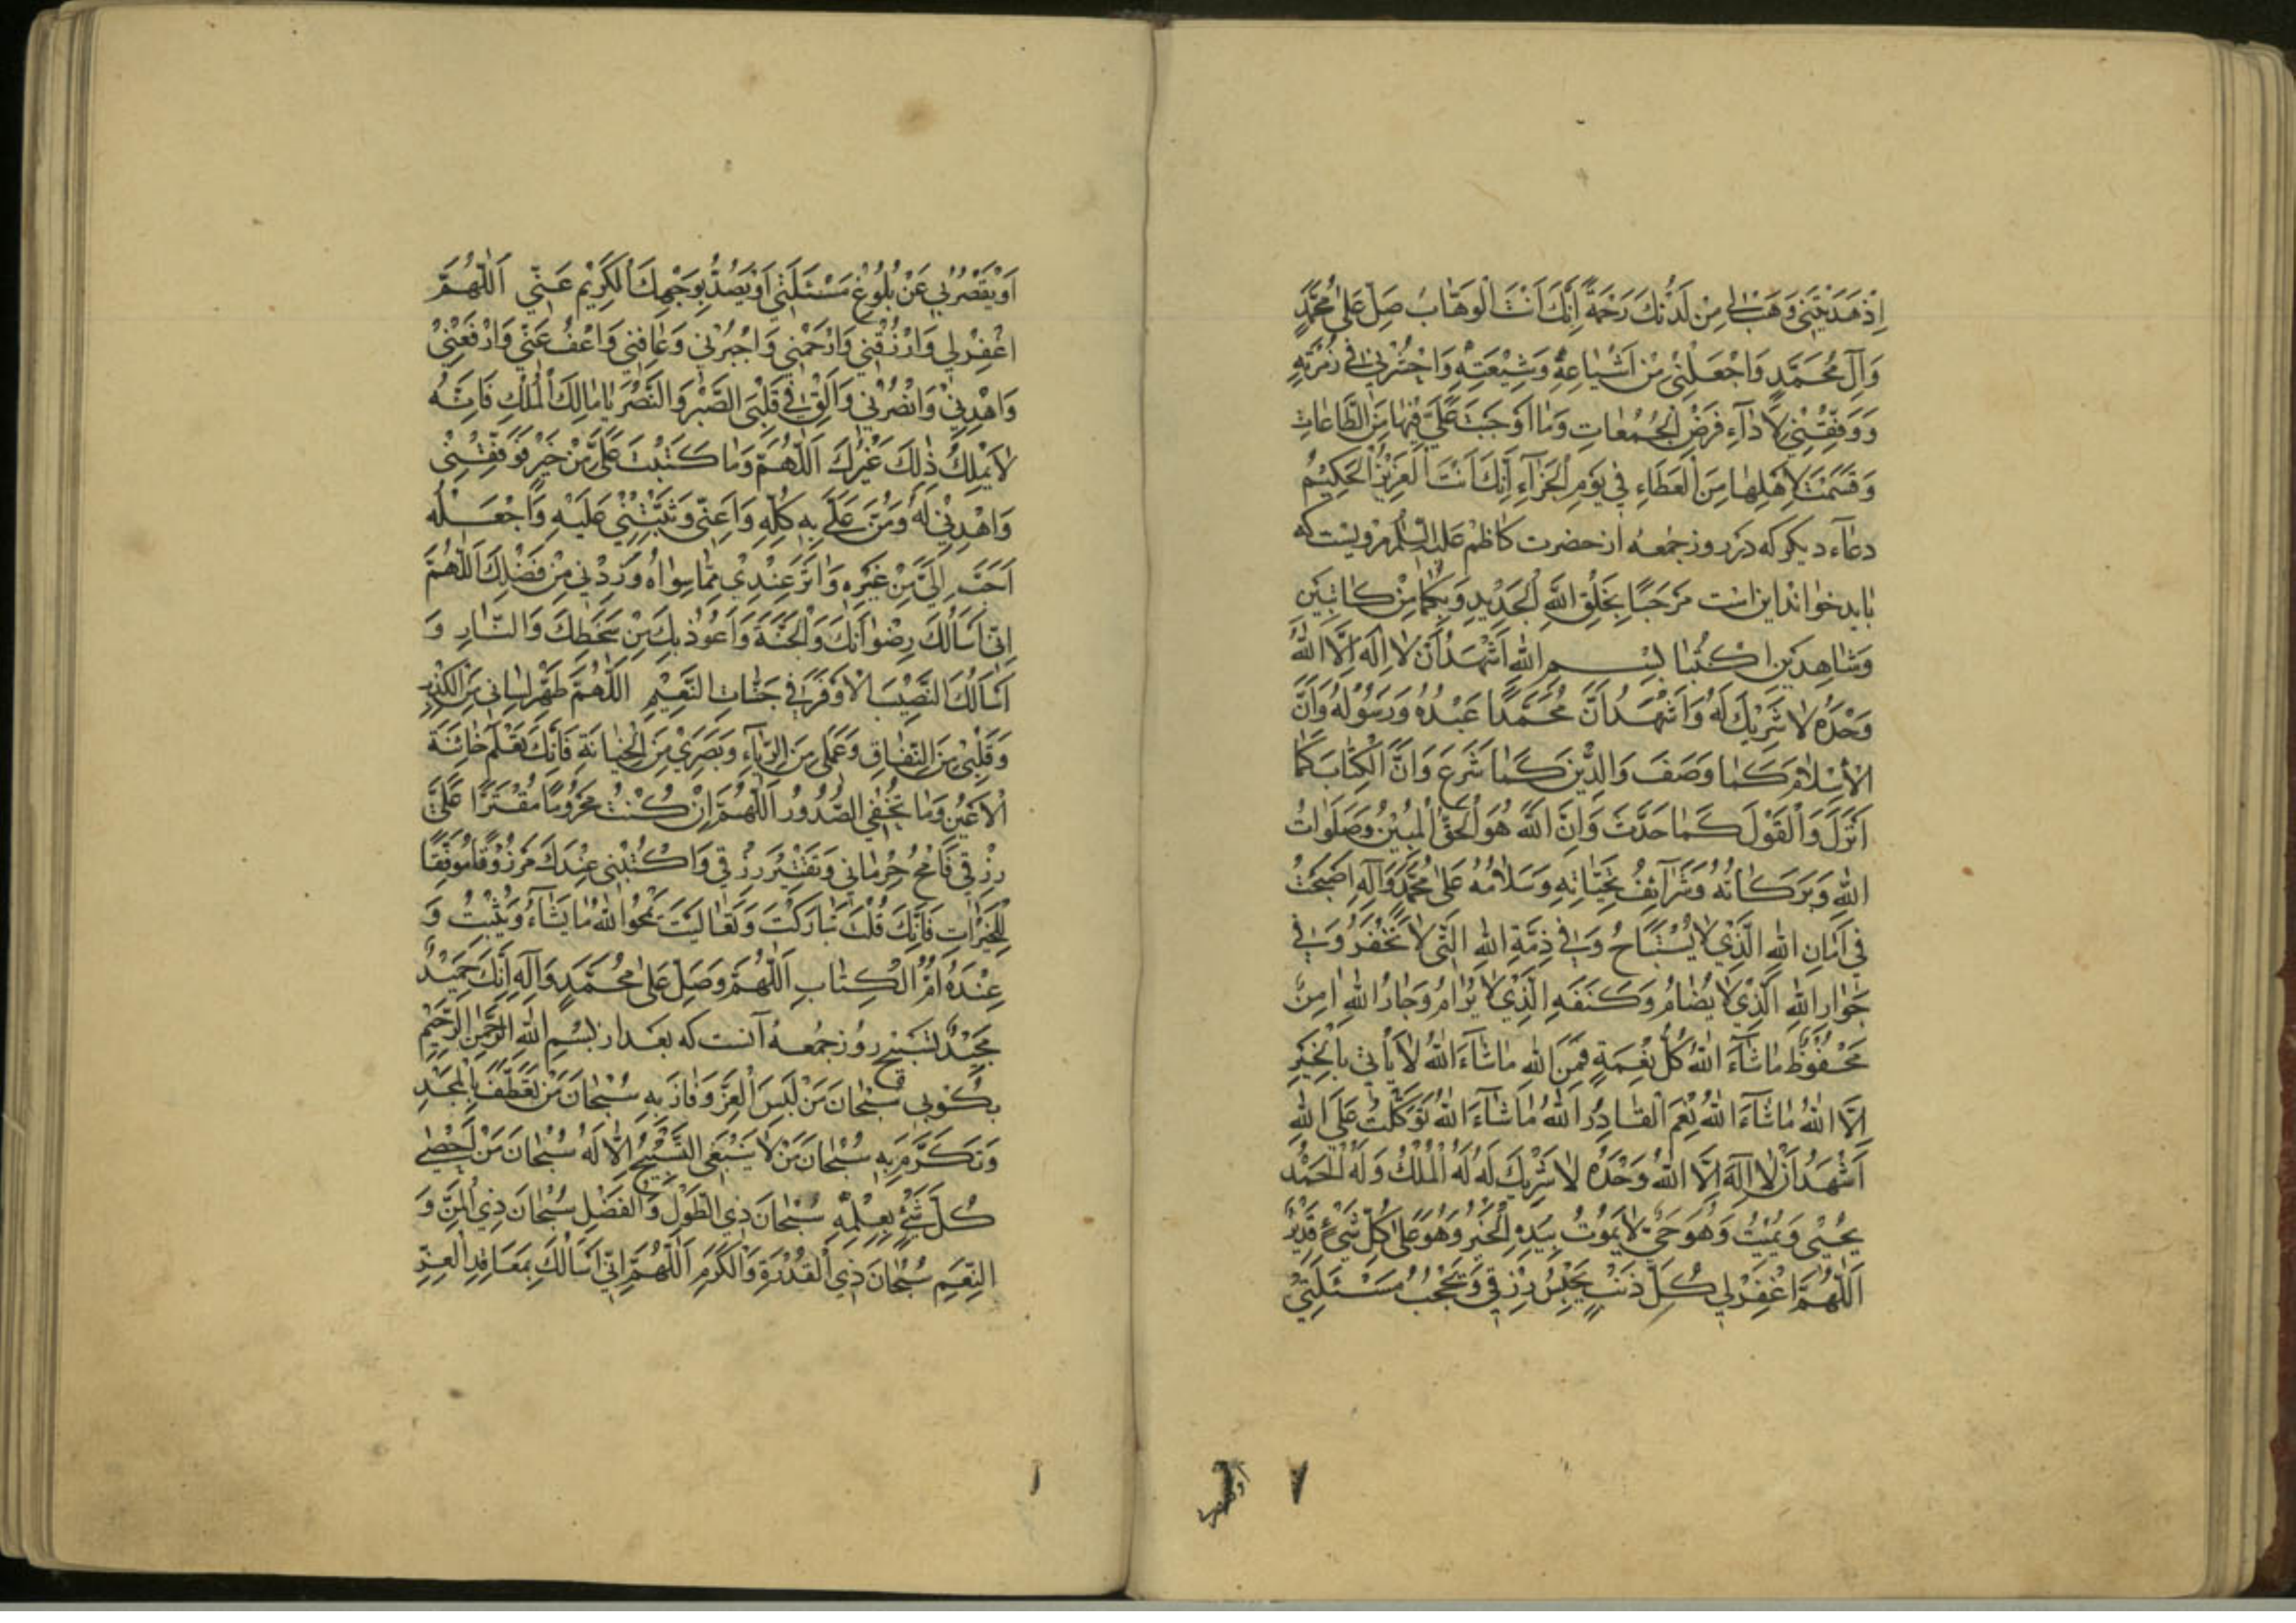 اِذْ هَدَيْتَنِي وَهَبْ لِي مِنْ لَدُنْكَ رَحْمَةً اِنَّكَ اَنْتَ الْوَهَّابُ صَلِّ عَلٰى مُحَمَّدٍ
وَآلِ مُحَمَّدٍ وَاجْعَلْنِي مِنْ اَشْيَاعِهِ وَشِيْعَتِهِ وَاحْشُرْنِي فِي زُمْرَتِهِ
وَوَفِّقْنِي لِاَدَآءِ فَرْضِ الْجُمُعَاتِ وَمَا اَوْجَبْتَ عَلَيَّ فِيْهَا مِنَ الطَّاعَاتِ
وَقَسَمْتَ لِاَهْلِهَا مِنَ الْعَطَاءِ فِي يَوْمِ الْجَزَآءِ اِنَّكَ اَنْتَ الْعَزِيْزُ الْحَكِيْمُ
دعاء ديكر كه در روز جمعه از حضرت كاظم عليه السلم مرويست كه
بايد خواند اين است مَرْحَبًا بِخَلْقِ اللهِ الْجَدِيْدِ وَبِكُمَا مِنْ كَاتِبَيْنِ
وَشَاهِدَيْنِ اكْتُبَا بِسْمِ اللهِ اَشْهَدُ اَنْ لَا اِلٰهَ اِلَّا اللهُ
وَحْدَهُ لَا شَرِيْكَ لَهُ وَاَشْهَدُ اَنَّ مُحَمَّدًا عَبْدُهُ وَرَسُوْلُهُ وَاَنَّ
الْاِسْلَامَ كَمَا وَصَفَ وَالدِّيْنَ كَمَا شَرَعَ وَاَنَّ الْكِتَابَ كَمَا
اَنْزَلَ وَالْقَوْلَ كَمَا حَدَّثَ وَاَنَّ اللهَ هُوَ الْحَقُّ الْمُبِيْنُ وَصَلَوَاتُ
اللهِ وَبَرَكَاتُهُ وَشَرَآئِفُ تَحِيَّاتِهِ وَسَلَامُهُ عَلٰى مُحَمَّدٍ وَآلِهِ اَصْبَحْتُ
فِي اَمَانِ اللهِ الَّذِيْ لَا يُسْتَبَاحُ وَفِي ذِمَّةِ اللهِ الَّتِي لَا تُخْفَرُ وَفِي
جَوَارِ اللهِ الَّذِيْ لَا يُضَامُ وَكَنَفِهِ الَّذِيْ لَا يُرَامُ وَجَارُ اللهِ اٰمِنٌ
مَحْفُوْظٌ مَا شَآءَ اللهُ كُلُّ نِعْمَةٍ فَمِنَ اللهِ مَا شَآءَ اللهُ لَا يَأْتِي بِالْخَيْرِ
اِلَّا اللهُ مَا شَآءَ اللهُ نِعْمَ الْقَادِرُ اللهُ مَا شَآءَ اللهُ تَوَكَّلْتُ عَلَى اللهِ
اَشْهَدُ اَنْ لَا اِلٰهَ اِلَّا اللهُ وَحْدَهُ لَا شَرِيْكَ لَهُ لَهُ الْمُلْكُ وَلَهُ الْحَمْدُ
يُحْيِي وَيُمِيْتُ وَهُوَ حَيٌّ لَا يَمُوْتُ بِيَدِهِ الْخَيْرُ وَهُوَ عَلٰى كُلِّ شَيْءٍ قَدِيْرٌ
اَللّٰهُمَّ اغْفِرْ لِي كُلَّ ذَنْبٍ يَحْبِسُ رِزْقِي وَيَحْجُبُ مَسْئَلَتِيْ
٧
اَوْ يَقْصُرُ بِي عَنْ بُلُوْغِ مَسْئَلَتِي اَوْ يَصُدُّ بِوَجْهِكَ الْكَرِيْمِ عَنِّي اَللّٰهُمَّ
اغْفِرْ لِي وَارْزُقْنِي وَارْحَمْنِي وَاجْبُرْنِي وَعَافِنِي وَاعْفُ عَنِّي وَارْفَعْنِيْ
وَاهْدِنِيْ وَانْصُرْنِي وَاَلْقِ فِي قَلْبِيَ الصَّبْرَ وَالنَّصْرَ يَا مَالِكَ الْمُلْكِ فَاِنَّهُ
لَا يَمْلِكُ ذٰلِكَ غَيْرُكَ اَللّٰهُمَّ وَمَا كَتَبْتَ عَلَيَّ مِنْ خَيْرٍ فَوَفِّقْنِيْ
وَاهْدِنِيْ لَهُ وَمُنَّ عَلَيَّ بِهِ كُلِّهِ وَاَعِنِّي وَثَبِّتْنِيْ عَلَيْهِ وَاجْعَلْهُ
اَحَبَّ اِلَيَّ مِنْ غَيْرِهِ وَاٰثَرَ عِنْدِيْ مِمَّا سِوَاهُ وَزِدْنِي مِنْ فَضْلِكَ اَللّٰهُمَّ
اِنِّي اَسْاَلُكَ رِضْوَانَكَ وَالْجَنَّةَ وَاَعُوْذُ بِكَ مِنْ سَخَطِكَ وَالنَّارِ وَ
اَسْاَلُكَ النَّصِيْبَ الْاَوْفَرَ فِي جَنَّاتِ النَّعِيْمِ اَللّٰهُمَّ طَهِّرْ لِسَانِي مِنَ الْكَذِبِ
وَقَلْبِيْ مِنَ النِّفَاقِ وَعَمَلِي مِنَ الرِّيَآءِ وَبَصَرِيْ مِنَ الْخِيَانَةِ فَاِنَّكَ تَعْلَمُ خَائِنَةَ
الْاَعْيُنِ وَمَا تُخْفِي الصُّدُوْرُ اَللّٰهُمَّ اِنْ كُنْتُ مَحْرُوْمًا مُقْتَرًا عَلَيَّ
رِزْقِي فَامْحُ حِرْمَانِي وَتَقْتِيْرَ رِزْقِي وَاكْتُبْنِي عِنْدَكَ مَرْزُوْقًا مُوَفَّقًا
لِلْخَيْرَاتِ فَاِنَّكَ قُلْتَ تَبَارَكْتَ وَتَعَالَيْتَ يَمْحُوا اللهُ مَا يَشَآءُ وَيُثْبِتُ وَ
عِنْدَهُ اُمُّ الْكِتَابِ اَللّٰهُمَّ وَصَلِّ عَلٰى مُحَمَّدٍ وَآلِهِ اِنَّكَ حَمِيْدٌ
مَجِيْدٌ تسبيح روز جمعه آنست كه بعد از بِسْمِ اللهِ الرَّحْمٰنِ الرَّحِيْمِ
بكويي سُبْحَانَ مَنْ لَبِسَ الْعِزَّ وَفَازَ بِهِ سُبْحَانَ مَنْ تَعَطَّفَ بِالْمَجْدِ
وَتَكَرَّمَ بِهِ سُبْحَانَ مَنْ لَا يَنْبَغِي التَّسْبِيْحُ اِلَّا لَهُ سُبْحَانَ مَنْ اَحْصٰى
كُلَّ شَيْءٍ بِعِلْمِهِ سُبْحَانَ ذِي الطَّوْلِ وَالْفَضْلِ سُبْحَانَ ذِي الْمَنِّ وَ
النِّعَمِ سُبْحَانَ ذِي الْقُدْرَةِ وَالْكَرَمِ اَللّٰهُمَّ اِنِّي اَسْاَلُكَ بِمَعَاقِدِ الْعِزِّ